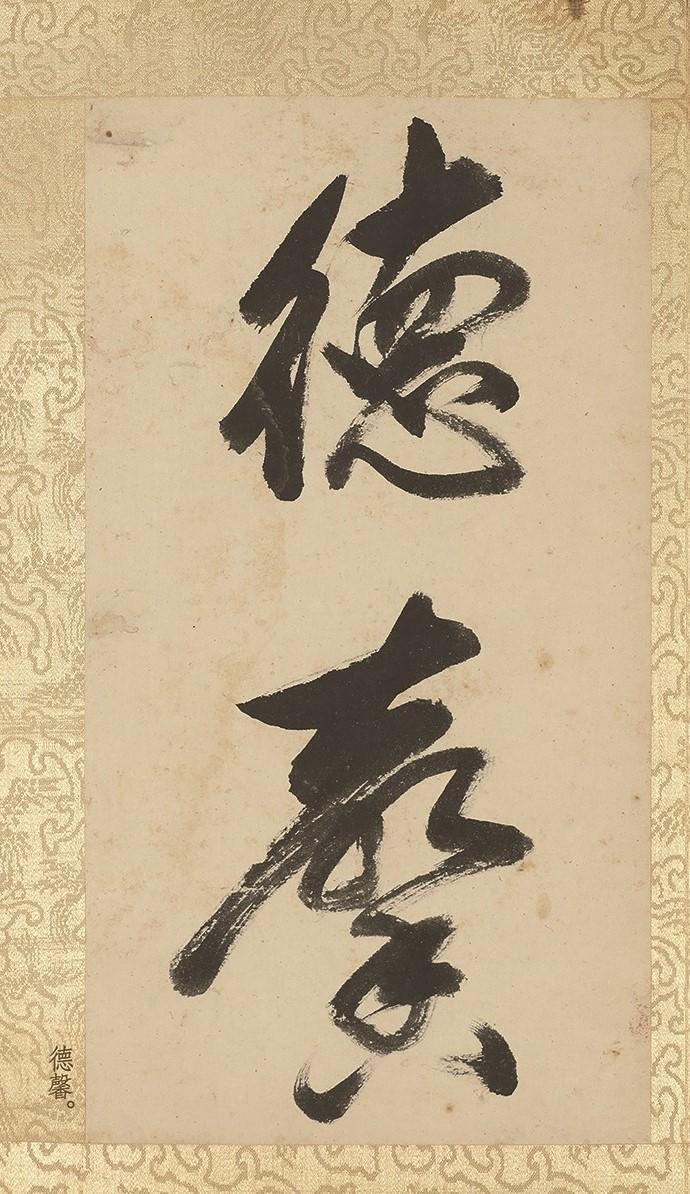 德馨
德馨。